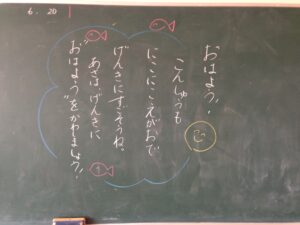 6. 20
おはよう!
こんしゅうも
にこにこえがおで
げんきにすごそうね。
あさは げんきに
"おはよう"をかわしましょう!